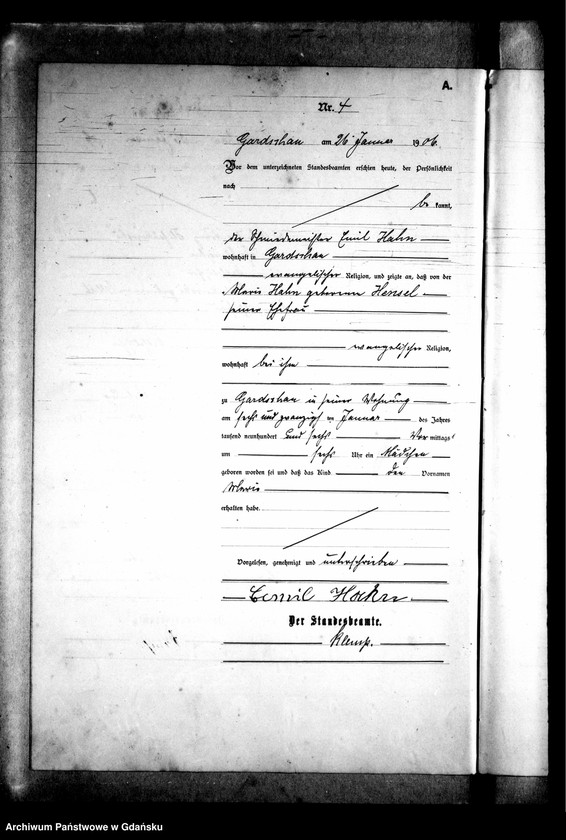 A.
Nr. 4
Gardschau am 26 Januar 1906.
Vor dem unterzeichneten Standesbeamten erschien heute, der Persönlichkeit
nach
be kannt,
der Schmiedemeister Emil Hahn
wohnhaft in Gardschau
evangelischer Religion, und zeigte an, daß von der
Marie Hahn geborenen Hensel
seiner Ehefrau
evangelischer Religion,
wohnhaft bei ihm
zu Gardschau in seiner Wohnung
am sechs und zwanzigsten Januar des Jahres
tausend neunhundert und sechs Vor mittags
um sechs Uhr ein Mädchen
geboren worden sei und daß das Kind den Vornamen
Marie
erhalten habe.
Vorgelesen, genehmigt und unterschrieben
Emil Hahn
Der Standesbeamte.
Archiwum Państwowe w Gdańsku